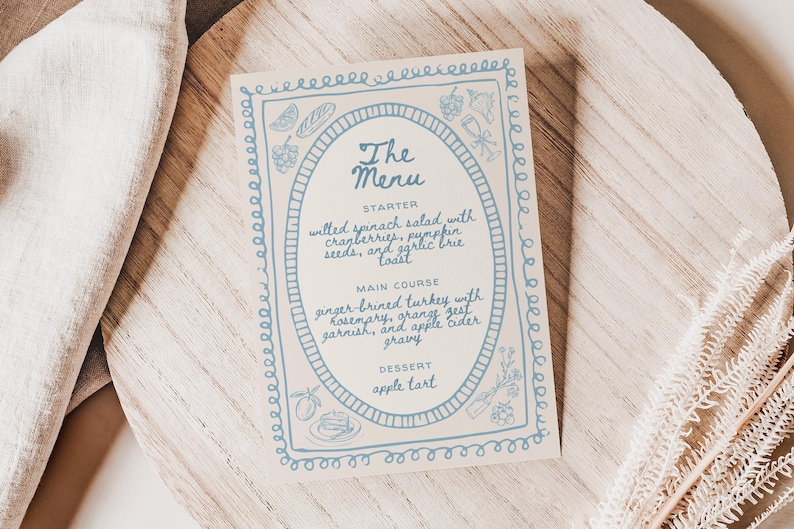 The
Menu
STARTER
wilted spinach salad with
cranberries, pumpkin
seeds, and garlic brie
toast
MAIN COURSE
ginger-brined turkey with
rosemary, orange zest
garnish, and apple cider
gravy
DESSERT
apple tart